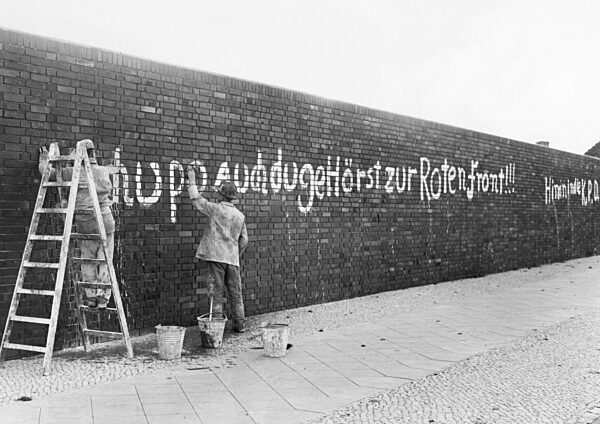 hupo auch du geHörst zur Roten Front!!!
Hinein in die K.P.D.